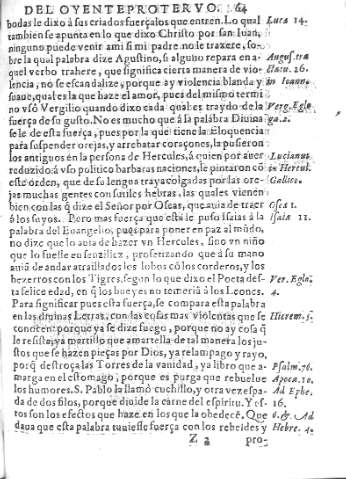 DEL OYENTE PROTERVO. 64
bodas le dixo à sus criados fuerçalos que entren. Lo qual Luca 14.
tambien se apunta en lo que dixo Christo por san Iuan,
ninguno puede venir ami si mi padre no le traxere, so-
bre la qual palabra dize Agustino, si alguno repara en a- Aug. tra
quel verbo trahere, que significa cierta manera de vio- ctatu. 26.
lencia, no se escandalize, porque ay violencia blanda y in Ioann.
suaue, qual es la que haze el amor, pues del mismo termi
no vsò Vergilio quando dixo cada qual es traydo de la Verg. Egla
fuerça de su gusto. No es mucho que à la palabra Diuina ga. 2.
se le dè esta fuerça, pues por la que tiene la eloquencia
para suspender orejas, y arrebatar coraçones, la pusieron
los antiguos en la persona de Hercules, à quien por auer Lucianus
reduzido à vso politico barbaras naciones, le pintaron cō in Hercul.
este orden, que de su lengua traya colgadas por las ore- Gallico.
jas muchas gentes con sutiles hebras, las quales vienen
bien con las q̃ dize el Señor por Oseas, que auia de traer Osea 1.
à los suyos. Pero mas fuerça que esta le puso Isaias à la Isaiæ 11.
palabra del Euangelio, pues para poner en paz al mūdo,
no dize que lo auia de hazer vn Hercules, sino vn niño
que lo fuesse en senzillez, prosetizando que à su mano
auiā de andar atraillados los lobos cō los corderos, y los
bezerros con los Tigres, segun lo que dixo el Poeta des- Ver. Egla.
ta felice edad, en q̃ los bueyes no temeriā à los Leones. 4.
Para significar pues esta fuerça, se compara esta palabra
en las diuinas Letras, con las cosas mas violentas que se Hierem. 5.
conocen porque ya se dize fuego, porque no ay cosa q̃
le resista, ya martillo que amartella de tal manera los ju-
stos que se hazen pieças por Dios, ya relampago y rayo,
porq̃ destroça las Torres de la vanidad, ya libro que a- Psalm. 76.
marga en el estomago, porque es purga que rebuelue Apoca. 10.
los humores. S. Pablo la llamò cuchillo, y otra vez espa- Ad Ephe.
da de dos filos, porque diuide la carne del espiritu. Y es- 16.
tos son los efectos que haze en los que la obedecē. Que 6. &. Ad
daua que esta palabra tuuiesse fuerça con los rebeldes y Hebre. 4.
Z 2 pro-